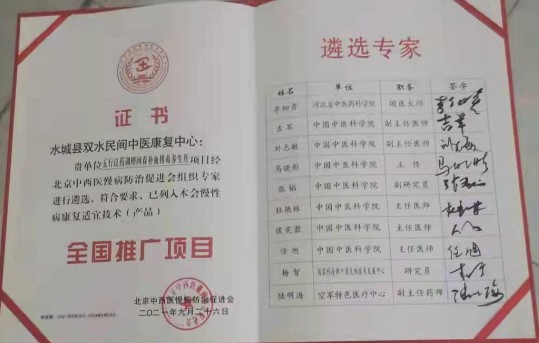 证书
水城县双水民间中医康复中心：
贵单位五行汉药调理润养补血排毒养生丹项目经
北京中西医慢病防治促进会组织专家
进行遴选，符合要求，已列入本会慢性
病康复适宜技术（产品）
全国推广项目
北京中西医慢病防治促进会
二〇二一年九月二十六日
遴选专家
姓名 单位 职务 签字
李佃贵 河北省中医药科学院 国医大师
吉军 中国中医科学院 副主任医师
刘志敏 中国中医科学院 副主任医师
马晓彤 中国中医科学院 主任
张韬 中国中医科学院 副研究员
杜艳林 中国中医科学院 主任医师
侯奕聚 中国中医科学院 主任医师
任旭 中国中医科学院 主任医师
杨智 研究员
陆明海 空军特色医疗中心 副主任药师